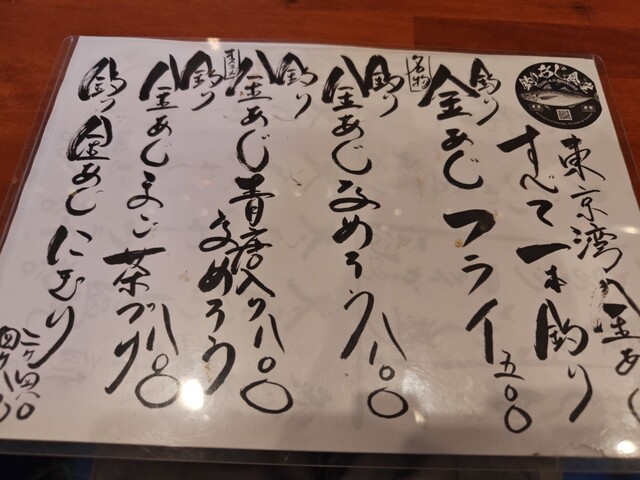 東京湾の金あじ
すべて一本釣り
名物
釣り金あじフライ 五〇〇
釣り金あじなめろう 八〇〇
釣り金あじ青唐入り 八〇〇
釣りなめろう
釣り金あじまご茶づけ 八〇〇
釣り金あじにぎり
二ヶ四〇〇
四ヶ八〇〇